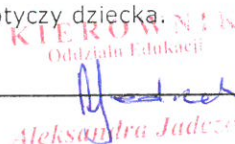 otyczy dziecka.
KIEROWNIK
Oddziału Edukacji
Aleksandra Jadcz